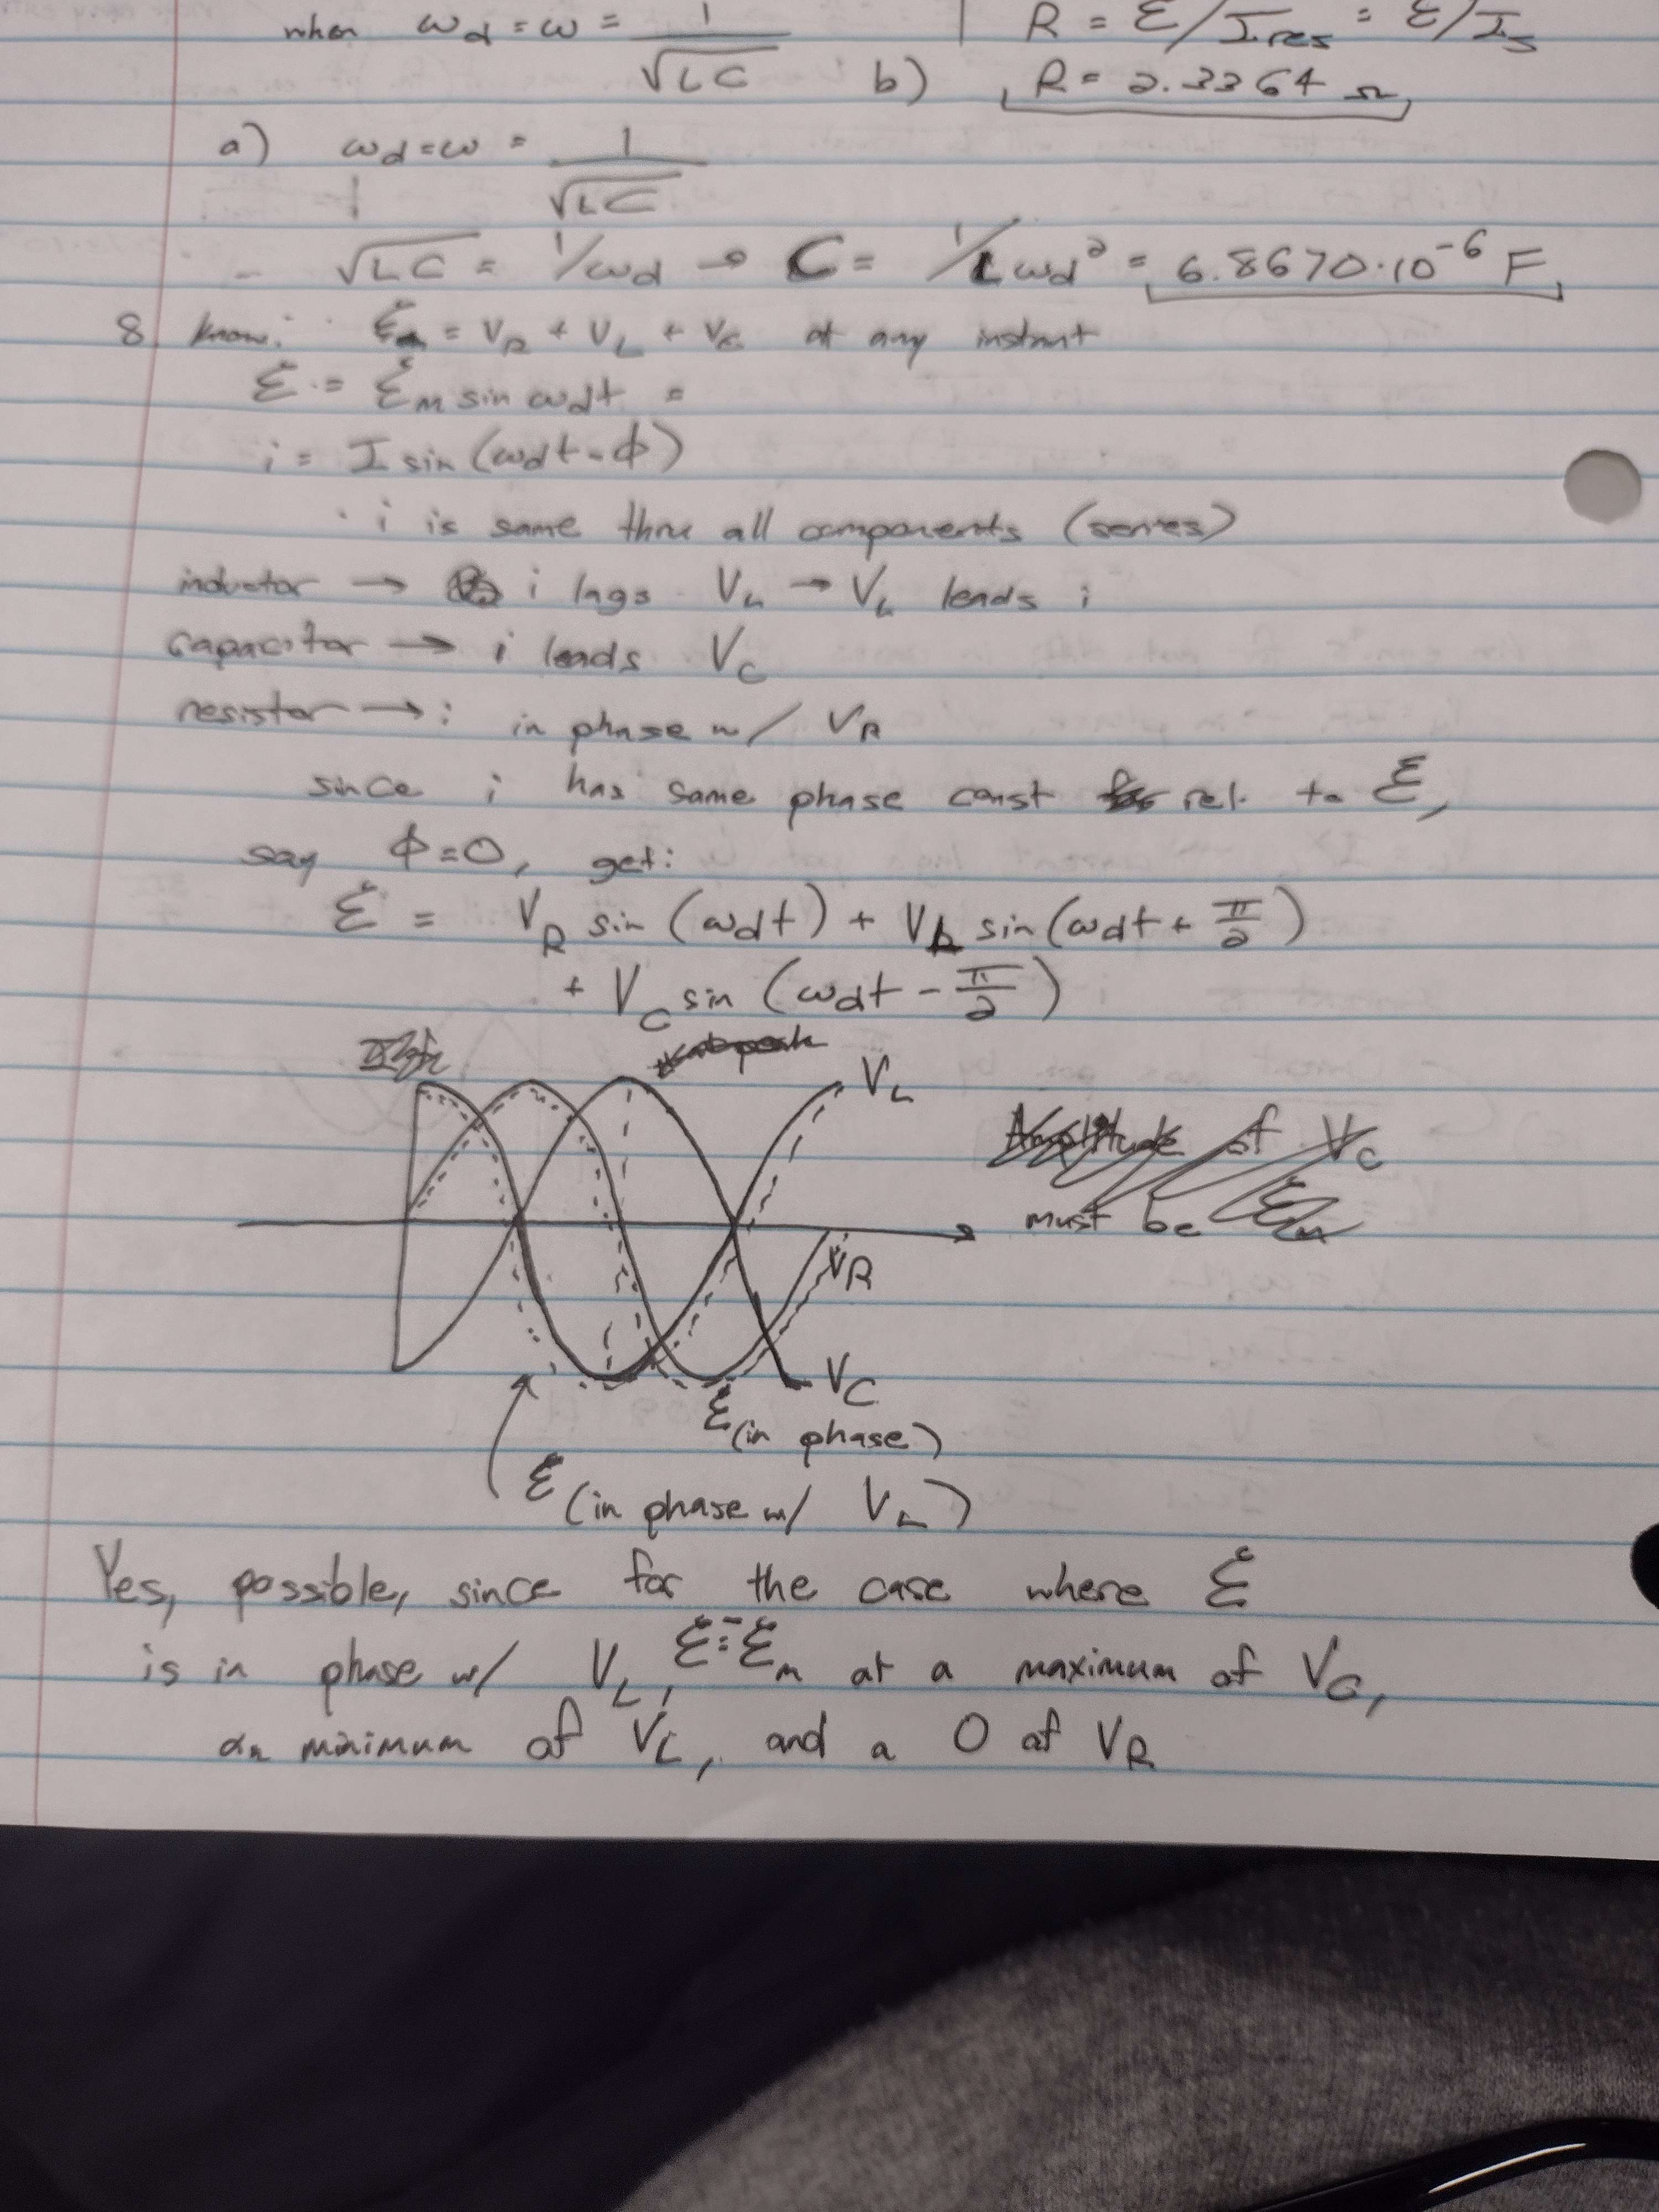 when ωd = ω = 1/√LC
R = ℰ/Ires = ℰ/Is
b) R = 2.3364 Ω
a) ωd = ω = 1/√LC
√LC = 1/ωd → C = 1/Lωd² = 6.8670·10⁻⁶ F
8. know: ℰ = VR + VL + VC at any instant
ℰ = ℰm sin ωdt =
i = I sin (ωdt - ϕ)
i is same thru all components (series)
inductor → i lags VL → VL leads i
capacitor → i leads VC
resistor → i in phase w/ VR
since i has same phase const rel. to ℰ,
say ϕ=0, get:
ℰ = VR sin (ωdt) + VL sin (ωdt + π/2)
+ VC sin (ωdt - π/2)
VL
Amplitude of VC
must be ℰm
VR
VC
ℰ (in phase)
ℰ (in phase w/ VL)
Yes, possible, since for the case where ℰ
is in phase w/ VL, ℰ = ℰm at a maximum of VC,
an minimum of VL, and a 0 of VR